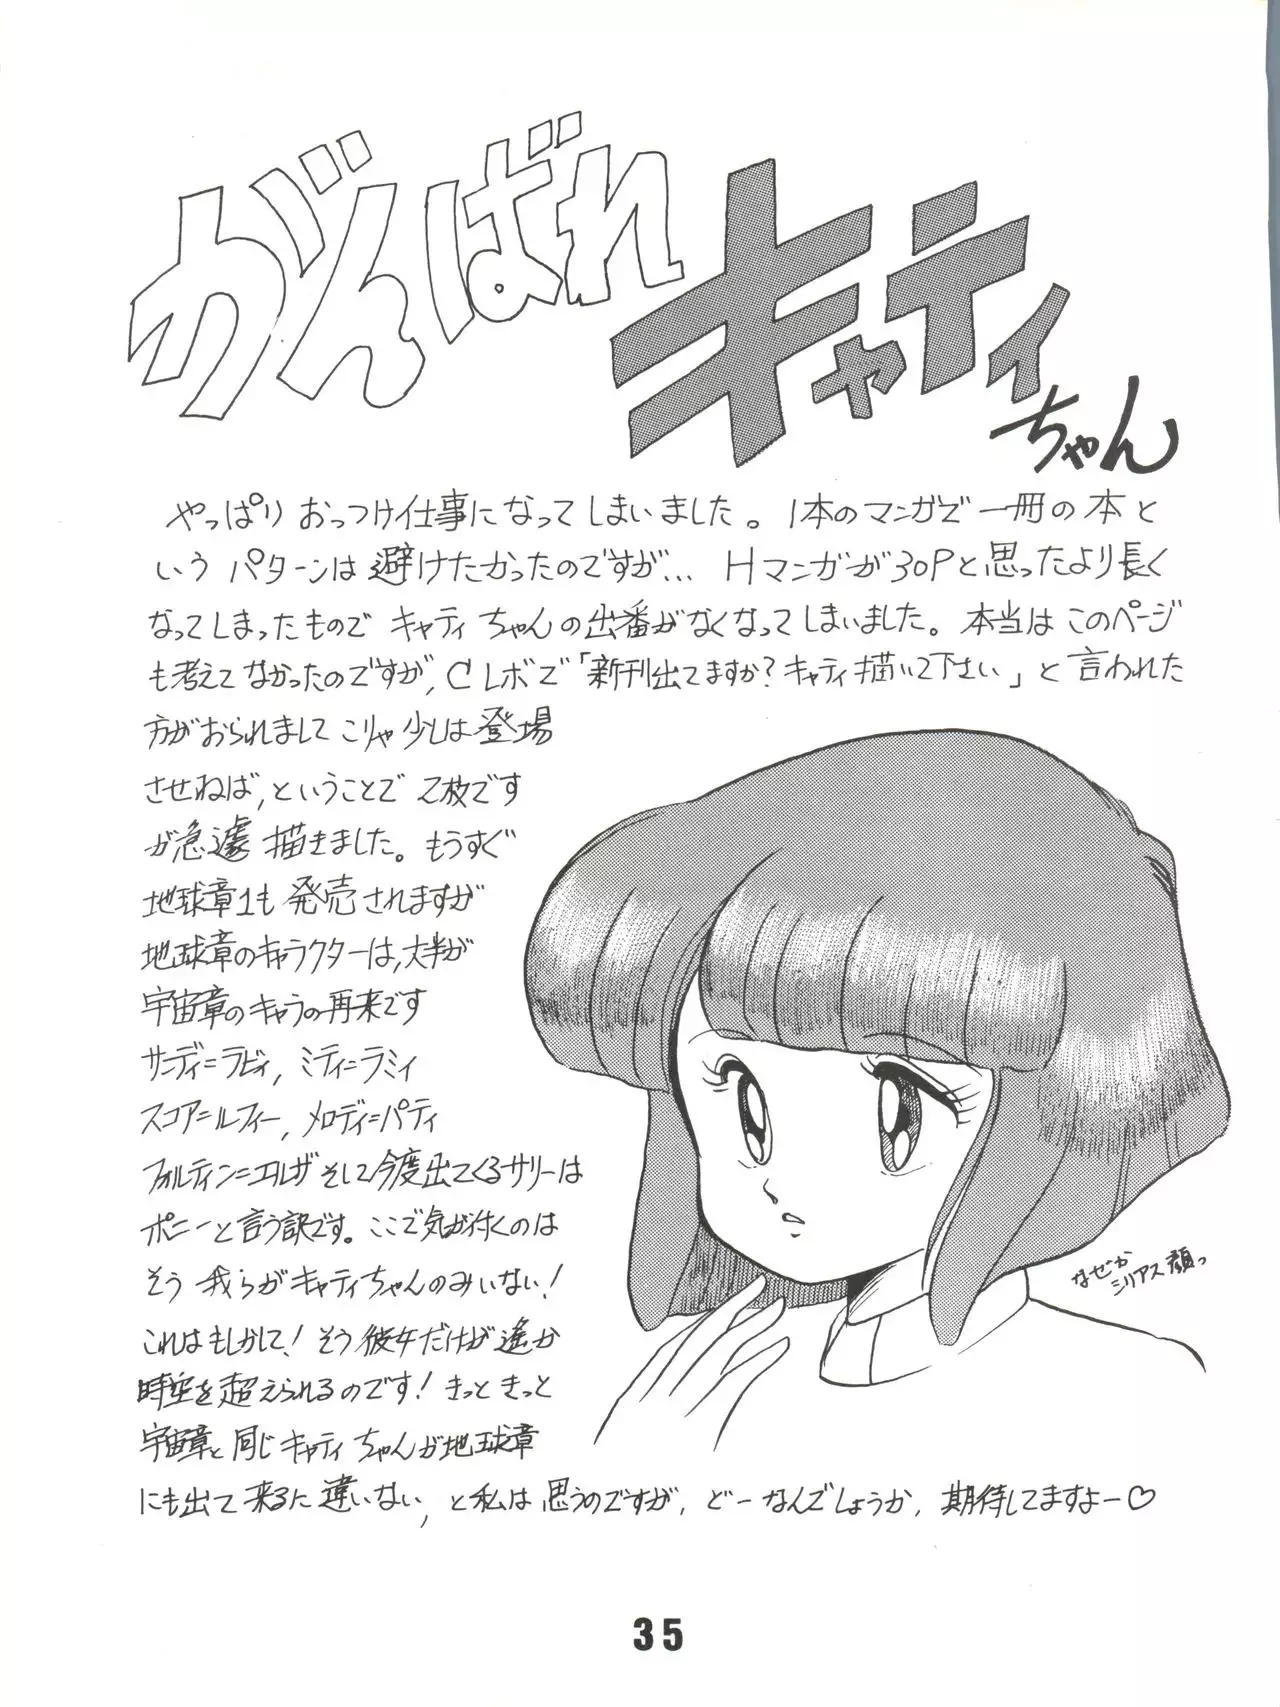 がんばれ
キャティ
ちゃん
やっぱり おっつけ仕事になってしまいました。1本のマンガで一冊の本と
いう パターンは避けたかったのですが… Hマンガが30Pと思ったより長く
なってしまったもので キャティちゃんの出番がなくなってしまいました。本当はこのページ
も考えてなかったのですが, CLボで「新刊出てますか?キャティ描いて下さい」と言われた
方がおられまして こりゃ少しは登場
させねば,ということで 2枚です
が急遽 描きました。もうすぐ
地球章1も 発売されますが
地球章のキャラクターは,大判が
宇宙章のキャラの再来です
サーディ=ラビィ, ミティ=ラミィ
スコア=ルフィー, メロディ=パティ
フォルティン=エルザ そして今度出てくるサリーは
ポニーと言う訳です。ここで気が付くのは
そう 我らがキャティちゃんのみいない!
これはもしかして!そう 彼女だけが遥か
時空を超えられるのです!きっときっと
宇宙章と同じキャティちゃんが地球章
にも出て来るに違いない, と私は思うのですが, どーなんでしょうか, 期待してますよー♡
なぜか
シリアス顔っ
35